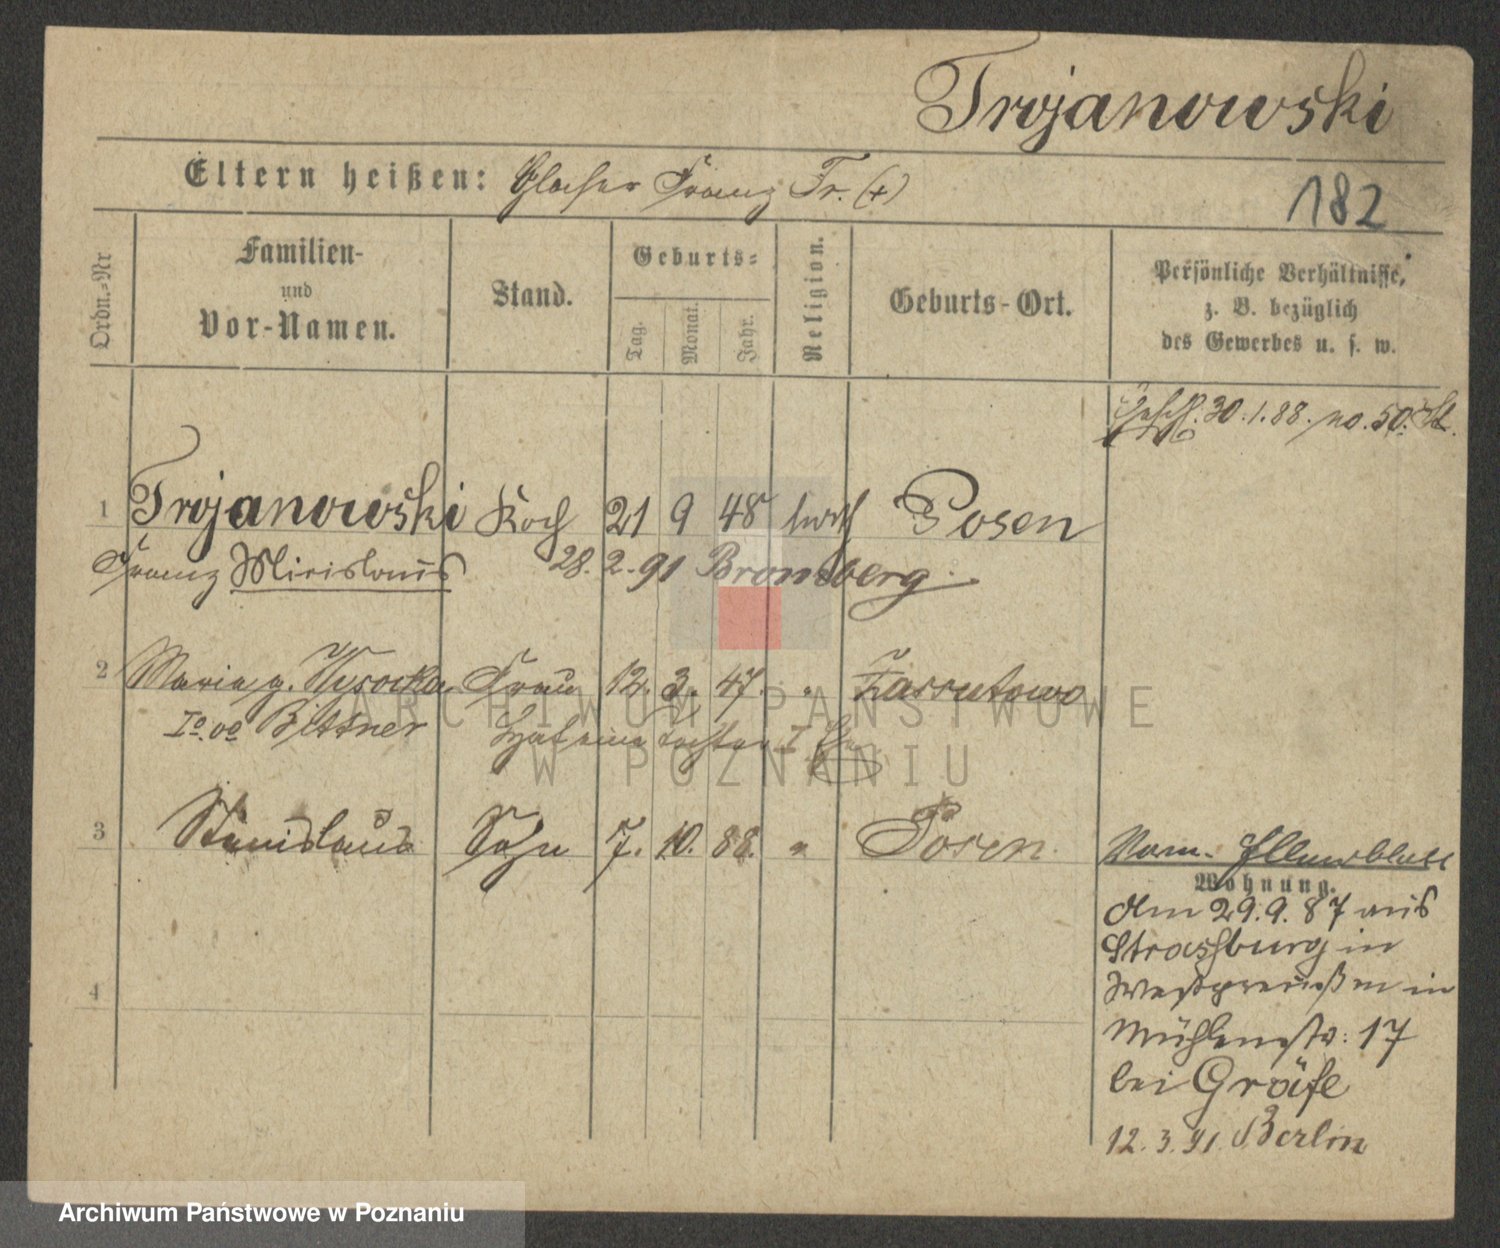 Trojanowski
Eltern heißen: Franz Tr. (+)
182
Ordn.-Nr
Familien-
und
Vor-Namen.
Stand.
Geburts-
Tag.
Monat.
Jahr.
Religion.
Geburts-Ort.
Persönliche Verhältnisse,
z. B. bezüglich
des Gewerbes u. s. w.
30.1.88. no. 50.
1 Trojanowski Koch 21 9 48 kath Posen
Franz Mirislaus 28. 2. 91 Bromberg
2 Maria g. Wysocka Frau 12. 3. 47. "
Io. vo Bittner Hat eine Tochter I Ehe
3 Stanislaus Sohn 7. 10. 88. " Posen
4
Wohnung.
Am 29.9.87 aus
Strasburg in
Westpreußen in
Mühlenstr: 17
bei Gräfe
12.3.91. Berlin
ARCHIWUM PAŃSTWOWE
W POZNANIU
Archiwum Państwowe w Poznaniu